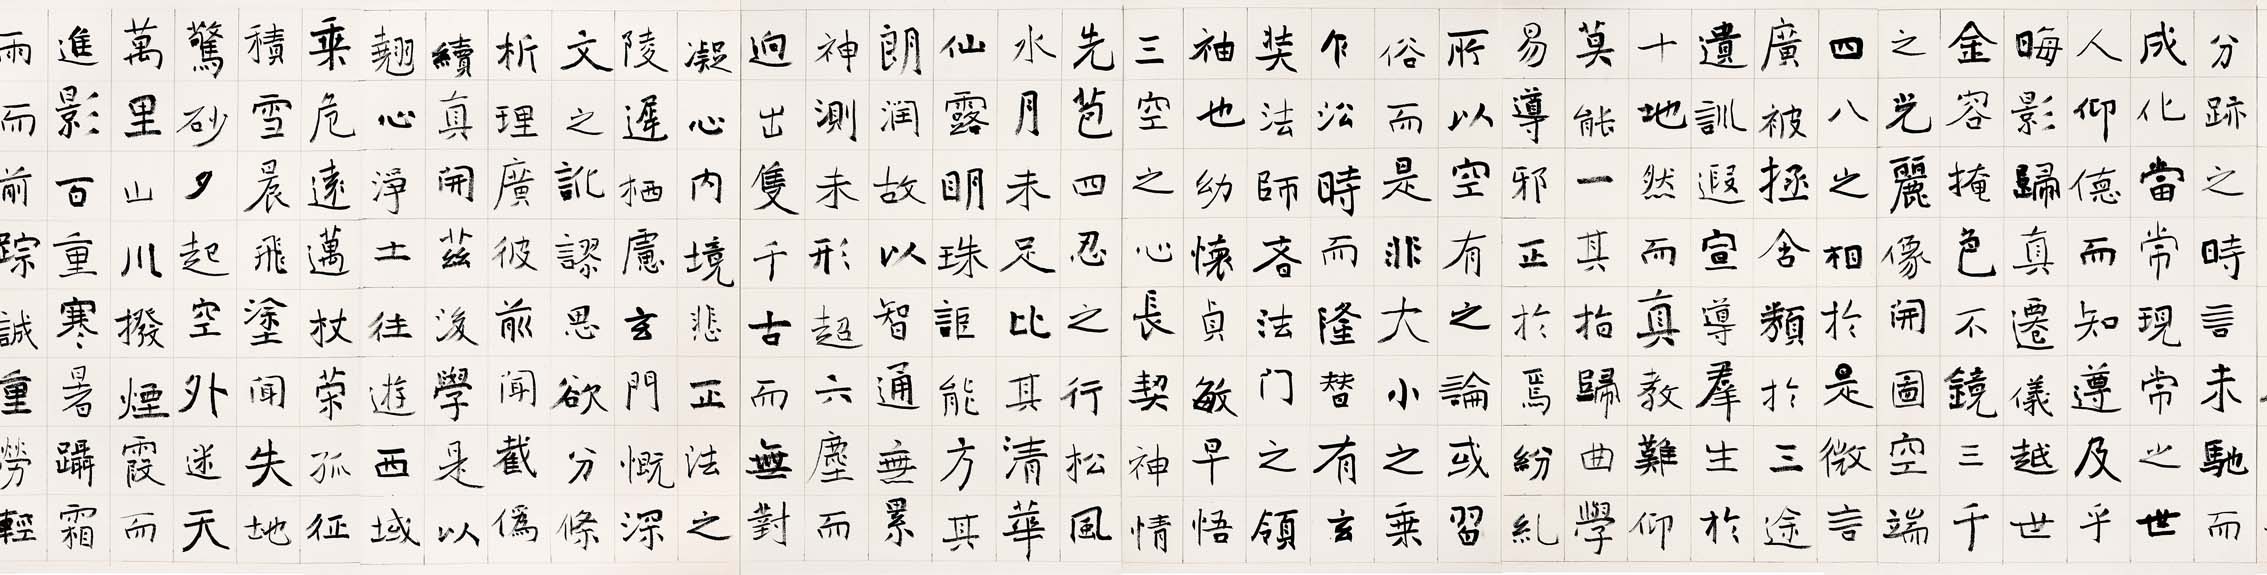 分跡之時言未馳而
成化當常現常之世
人仰德而知遵及乎
晦影歸真遷儀越世
金容掩色不鏡三千
之光麗像開圖空端
四八之相於是微言
廣被拯含類於三途
遺訓遐宣導羣生於
十地然而真教難仰
莫能一其指歸曲學
易導邪正於焉紛糺
所以空有之論或習
俗而是非大小之乘
乍沿時而隆替有玄
奘法師者法门之領
袖也幼懷貞敏早悟
三空之心長契神情
先苞四忍之行松風
水月未足比其清華
仙露明珠詎能方其
朗润故以智通無累
神測未形超六塵而
迥出隻千古而無對
凝心内境悲正法之
陵遲栖慮玄門慨深
文之訛謬思欲分條
析理廣彼前闻截偽
續真開茲後學是以
翹心淨土往遊西域
乘危遠邁杖策孤征
積雪晨飛塗闻失地
驚砂夕起空外迷天
萬里山川撥煙霞而
進影百重寒暑躡霜
雨而前踪誠重勞輕